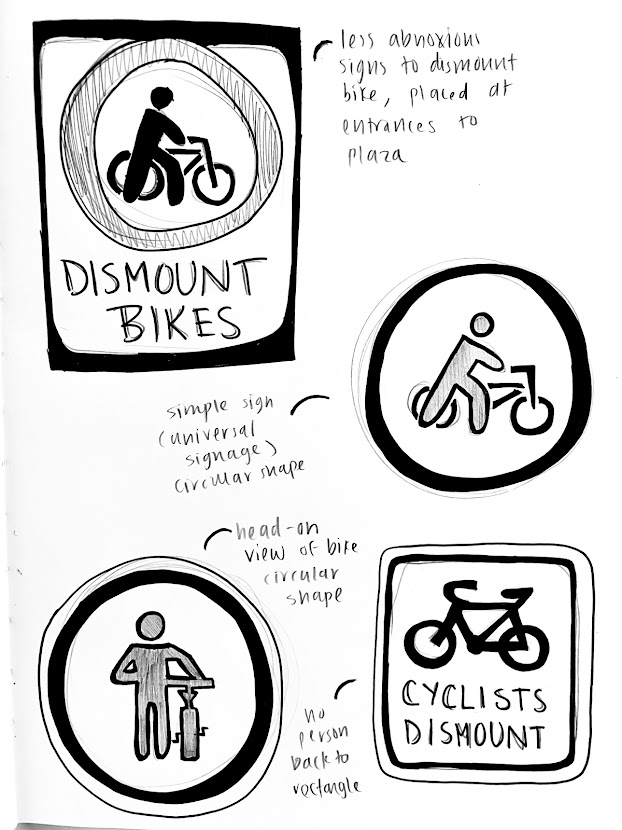 less abnoxious
signs to dismount
bike, placed at
entrances to
plaza
DISMOUNT
BIKES
simple sign
(universal
signage)
circular shape
head-on
view of bike
circular
shape
CYCLISTS
DISMOUNT
no
person
back to
rectangle